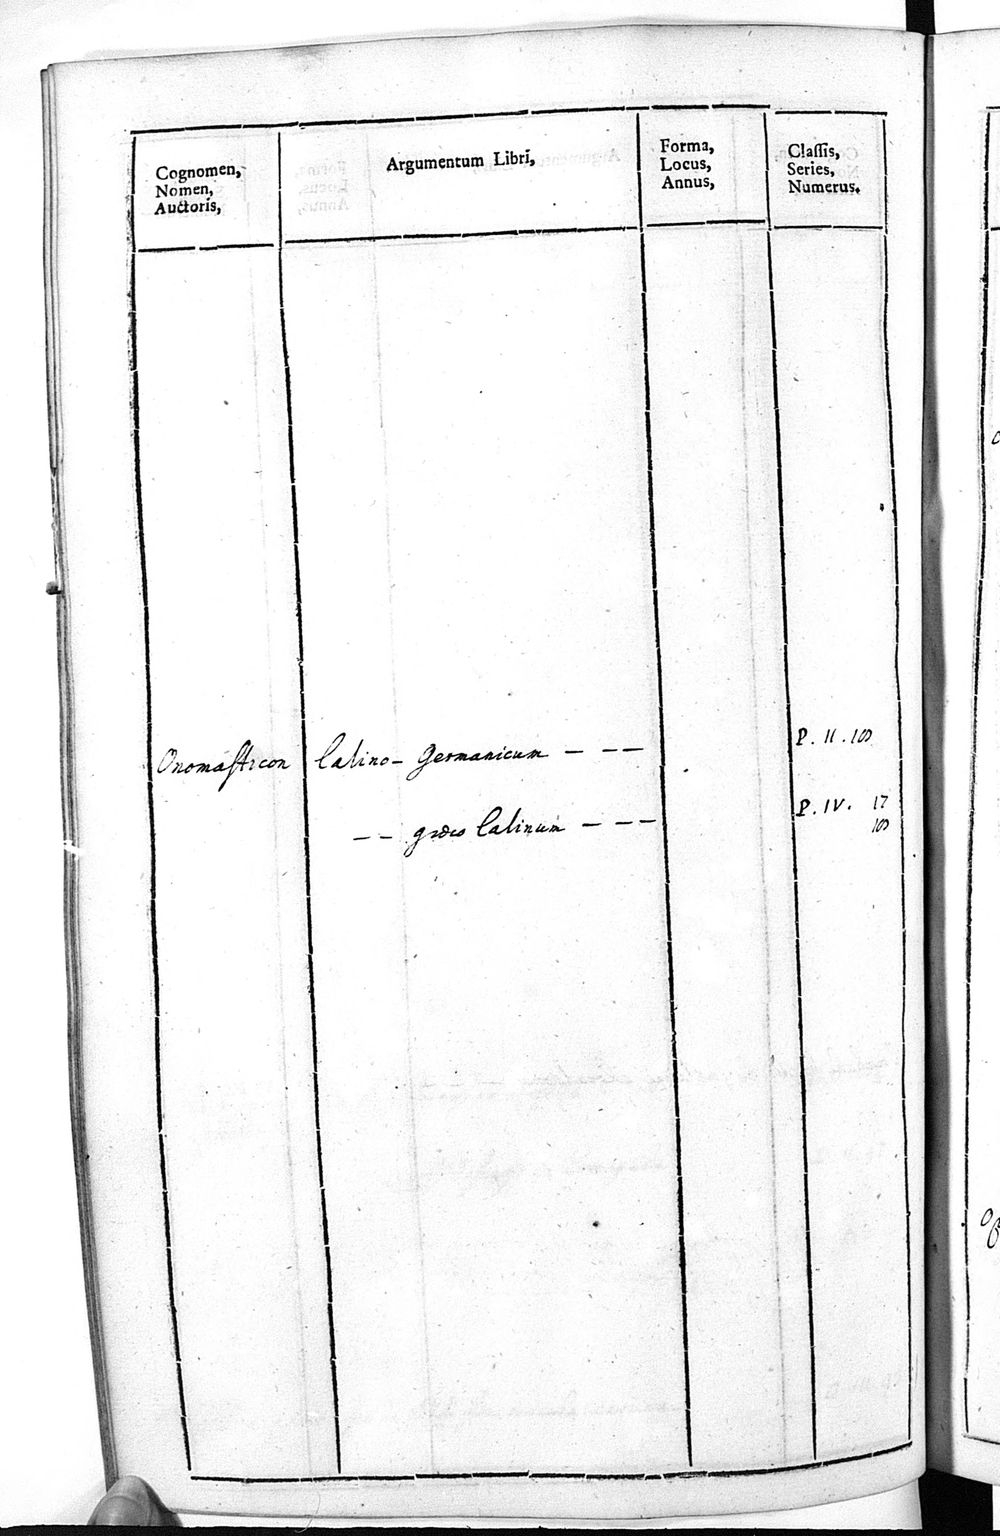 Cognomen,
Nomen,
Auctoris,
Argumentum Libri,
Forma,
Locus,
Annus,
Classis,
Series,
Numerus.
Onomasticon Latino- Germanicum - - - P. II. 103
- - græco Latinum - - - P. IV. 17
103